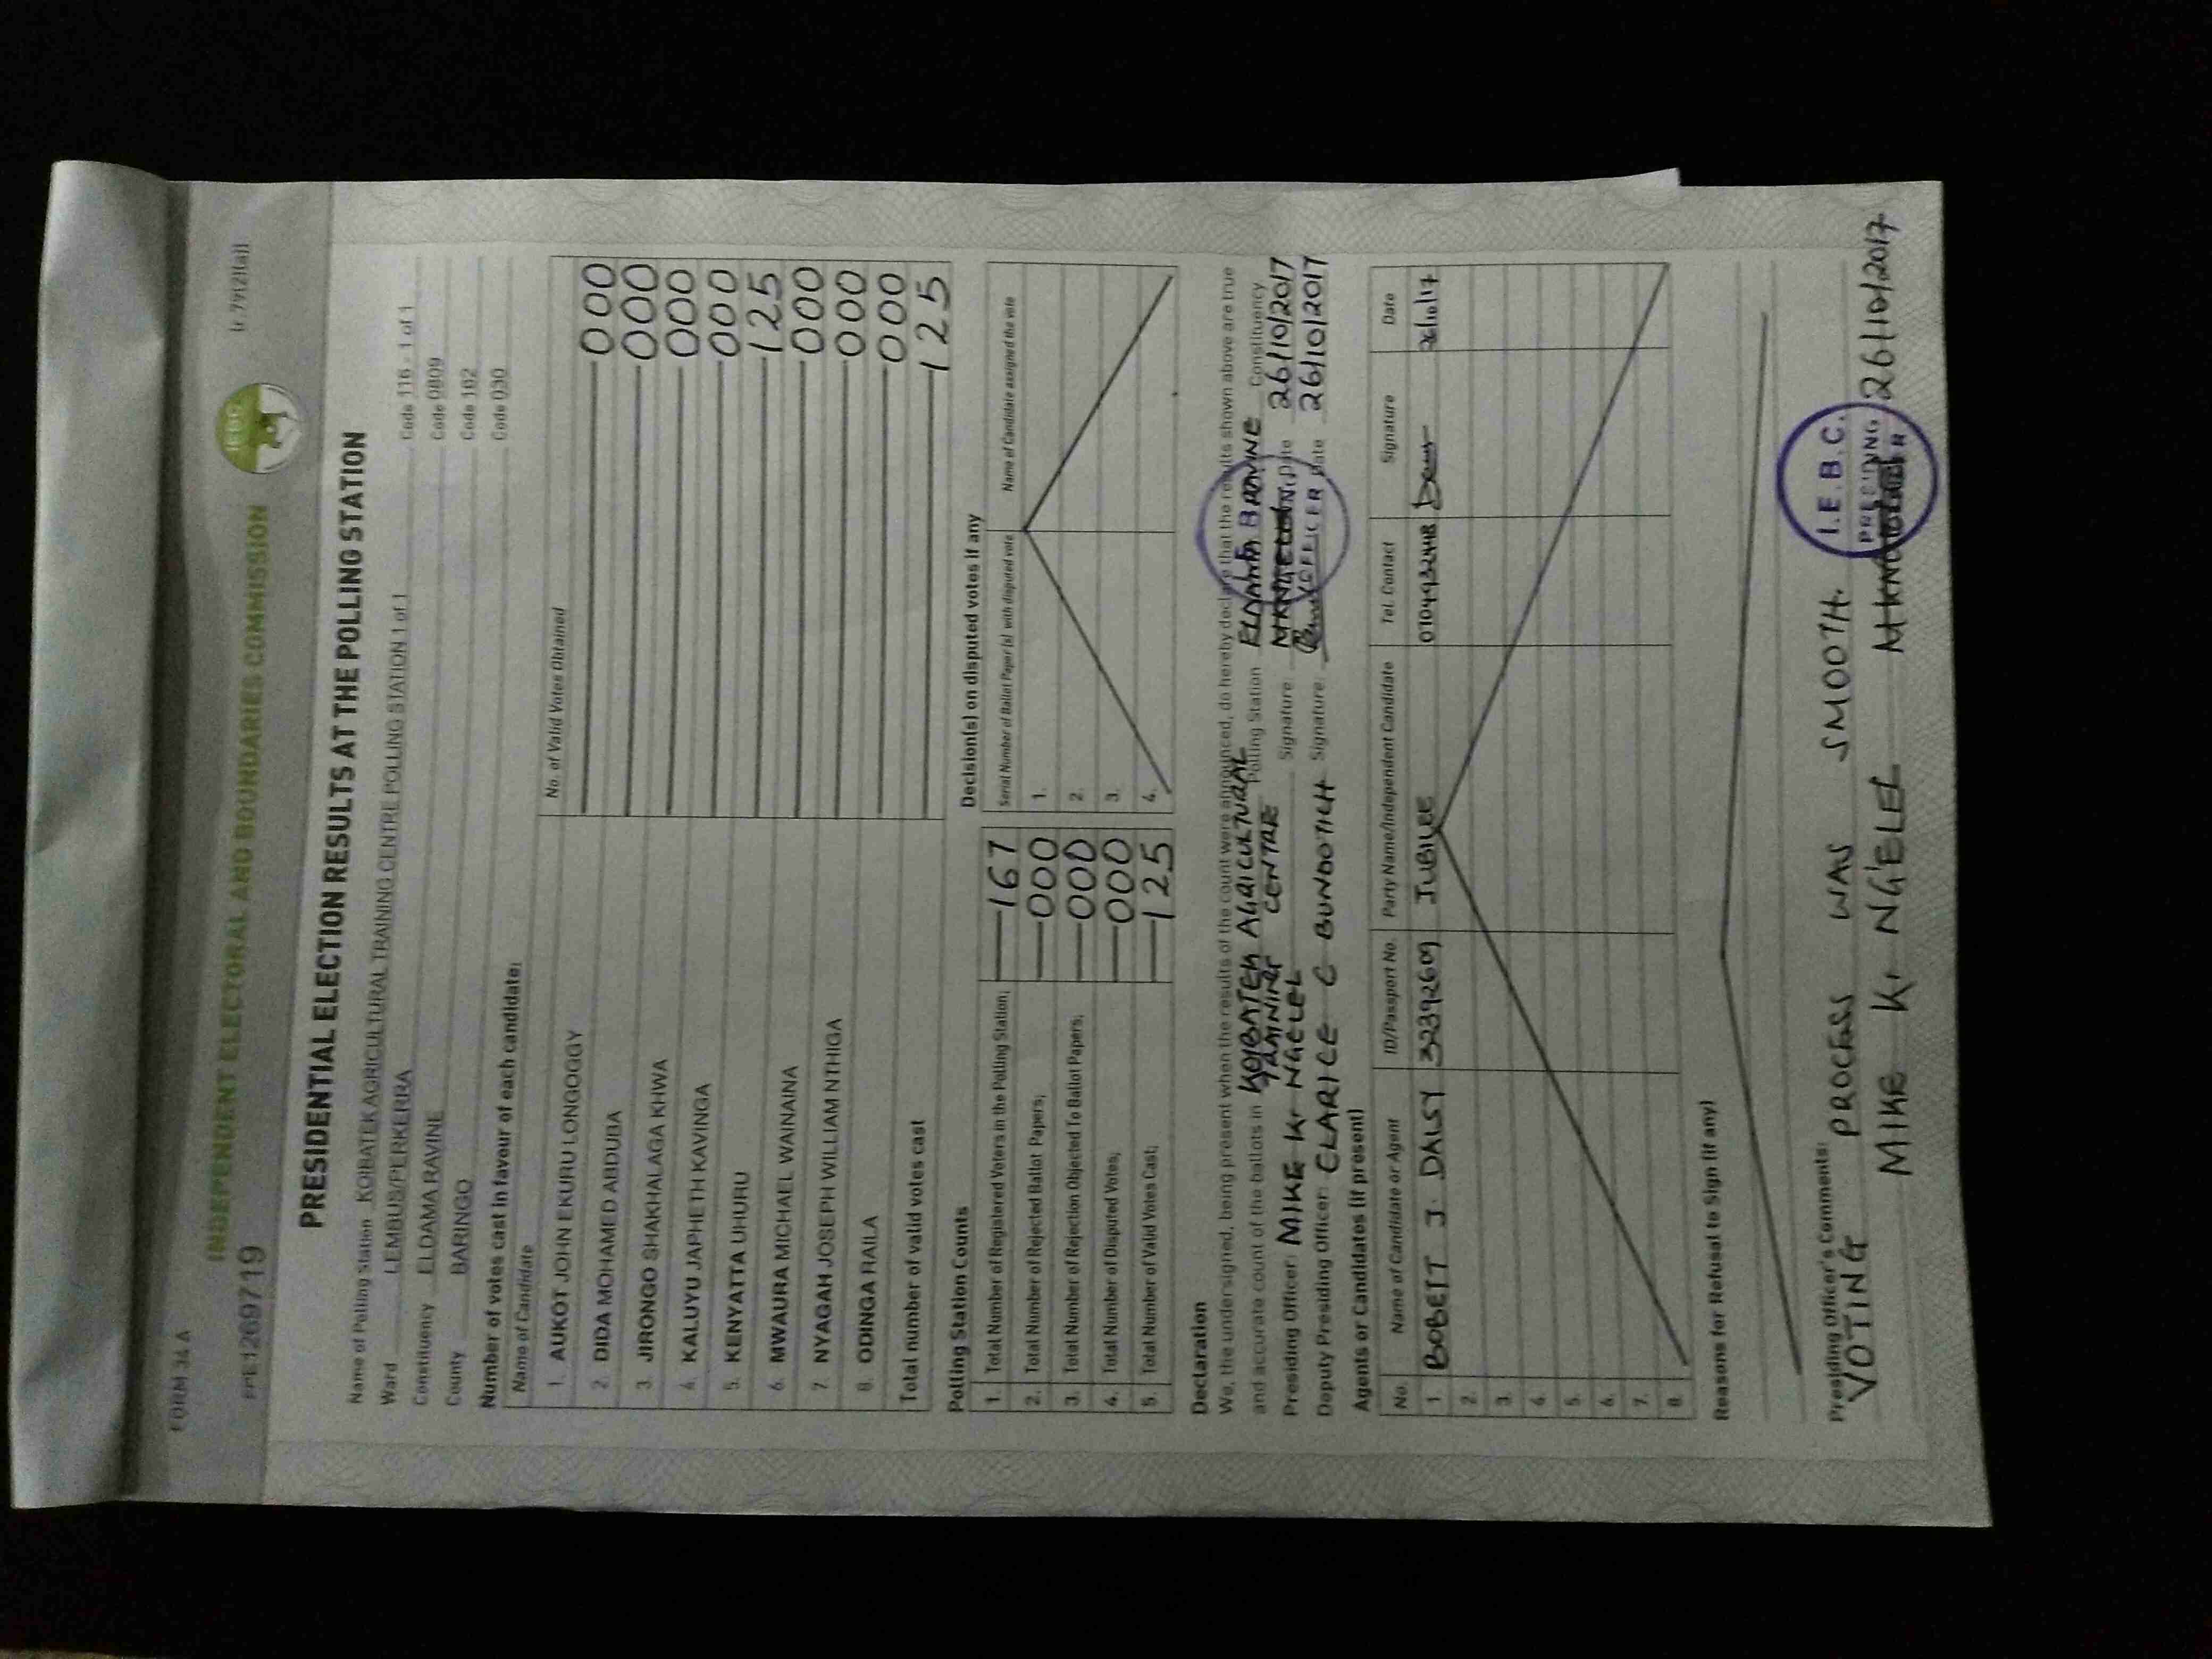 FORM 34 A
INDEPENDENT ELECTORAL AND BOUNDARIES COMMISSION
IEBC
(r.79(2)(a))
PRESIDENTIAL ELECTION RESULTS AT THE POLLING STATION
Name of Polling Station KOIBATEK AGRICULTURAL TRAINING CENTRE POLLING STATION 1 of 1 Code 116 - 1 of 1
Ward LEMBUS/PERKERRA Code 0809
Constituency ELDAMA RAVINE Code 162
County BARINGO Code 030
Number of votes cast in favour of each candidate:
Name of Candidate No. of Valid Votes Obtained
1. AUKOT JOHN EKURU LONGOGGY 000
2. DIDA MOHAMED ABDUBA 000
3. JIRONGO SHAKHALAGA KHWA 000
4. KALUYU JAPHETH KAVINGA 000
5. KENYATTA UHURU 125
6. MWAURA MICHAEL WAINAINA 000
7. NYAGAH JOSEPH WILLIAM NTHIGA 000
8. ODINGA RAILA 000
Total number of valid votes cast 125
Polling Station Counts
1. Total Number of Registered Voters in the Polling Station; 167
2. Total Number of Rejected Ballot Papers; 000
3. Total Number of Rejection Objected To Ballot Papers; 000
4. Total Number of Disputed Votes; 000
5. Total Number of Valid Votes Cast; 125
Decision(s) on disputed votes if any
Serial Number of Ballot Paper (s) with disputed vote Name of Candidate assigned the vote
1.
2.
3.
4.
Declaration
We, the undersigned, being present when the results of the count were announced, do hereby declare that the results shown above are true
and accurate count of the ballots in KOIBATEK AGRICULTURAL TRAINING CENTRE Polling Station ELDAMA RAVINE Constituency
Presiding Officer: MIKE K. NGELEL Signature: Date 26/10/2017
Deputy Presiding Officer: CLARICE C BUNDOTICH Signature: Date 26/10/2017
OFFICER
Agents or Candidates (if present)
No. Name of Candidate or Agent ID/Passport No. Party Name/Independent Candidate Tel. Contact Signature Date
1 BOBETT J. DAISY 32392609 JUBILEE 26/10/17
2.
3.
4.
5.
6.
7.
8.
Reasons for Refusal to Sign (if any)
Presiding Officer's Comments:
VOTING PROCESS WAS SMOOTH.
MIKE K. NG'ELEL 26/10/2017
I.E.B.C.
PRESIDING